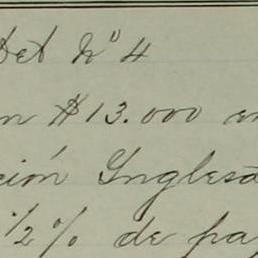 Det Nº 4
n $13.000 en
ción Inglesa
1/2% de pa